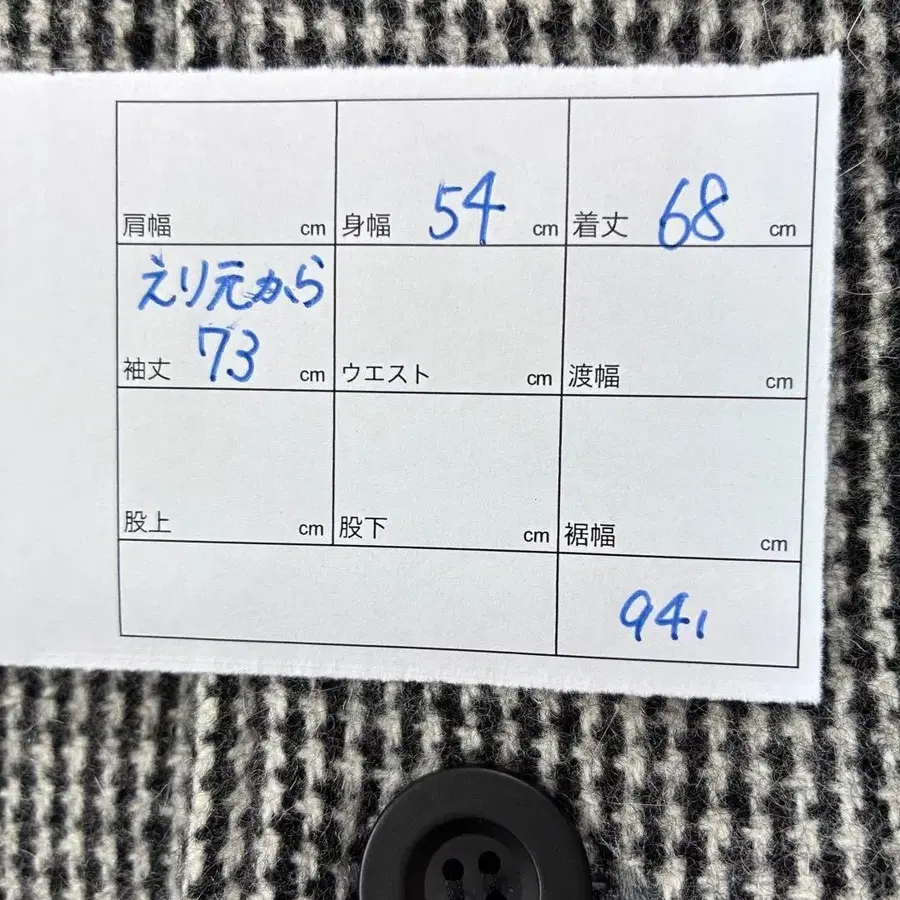 肩幅 cm
身幅 54 cm
着丈 68 cm
えり元から
袖丈 73 cm
ウエスト cm
渡幅 cm
股上 cm
股下 cm
裾幅 cm
941